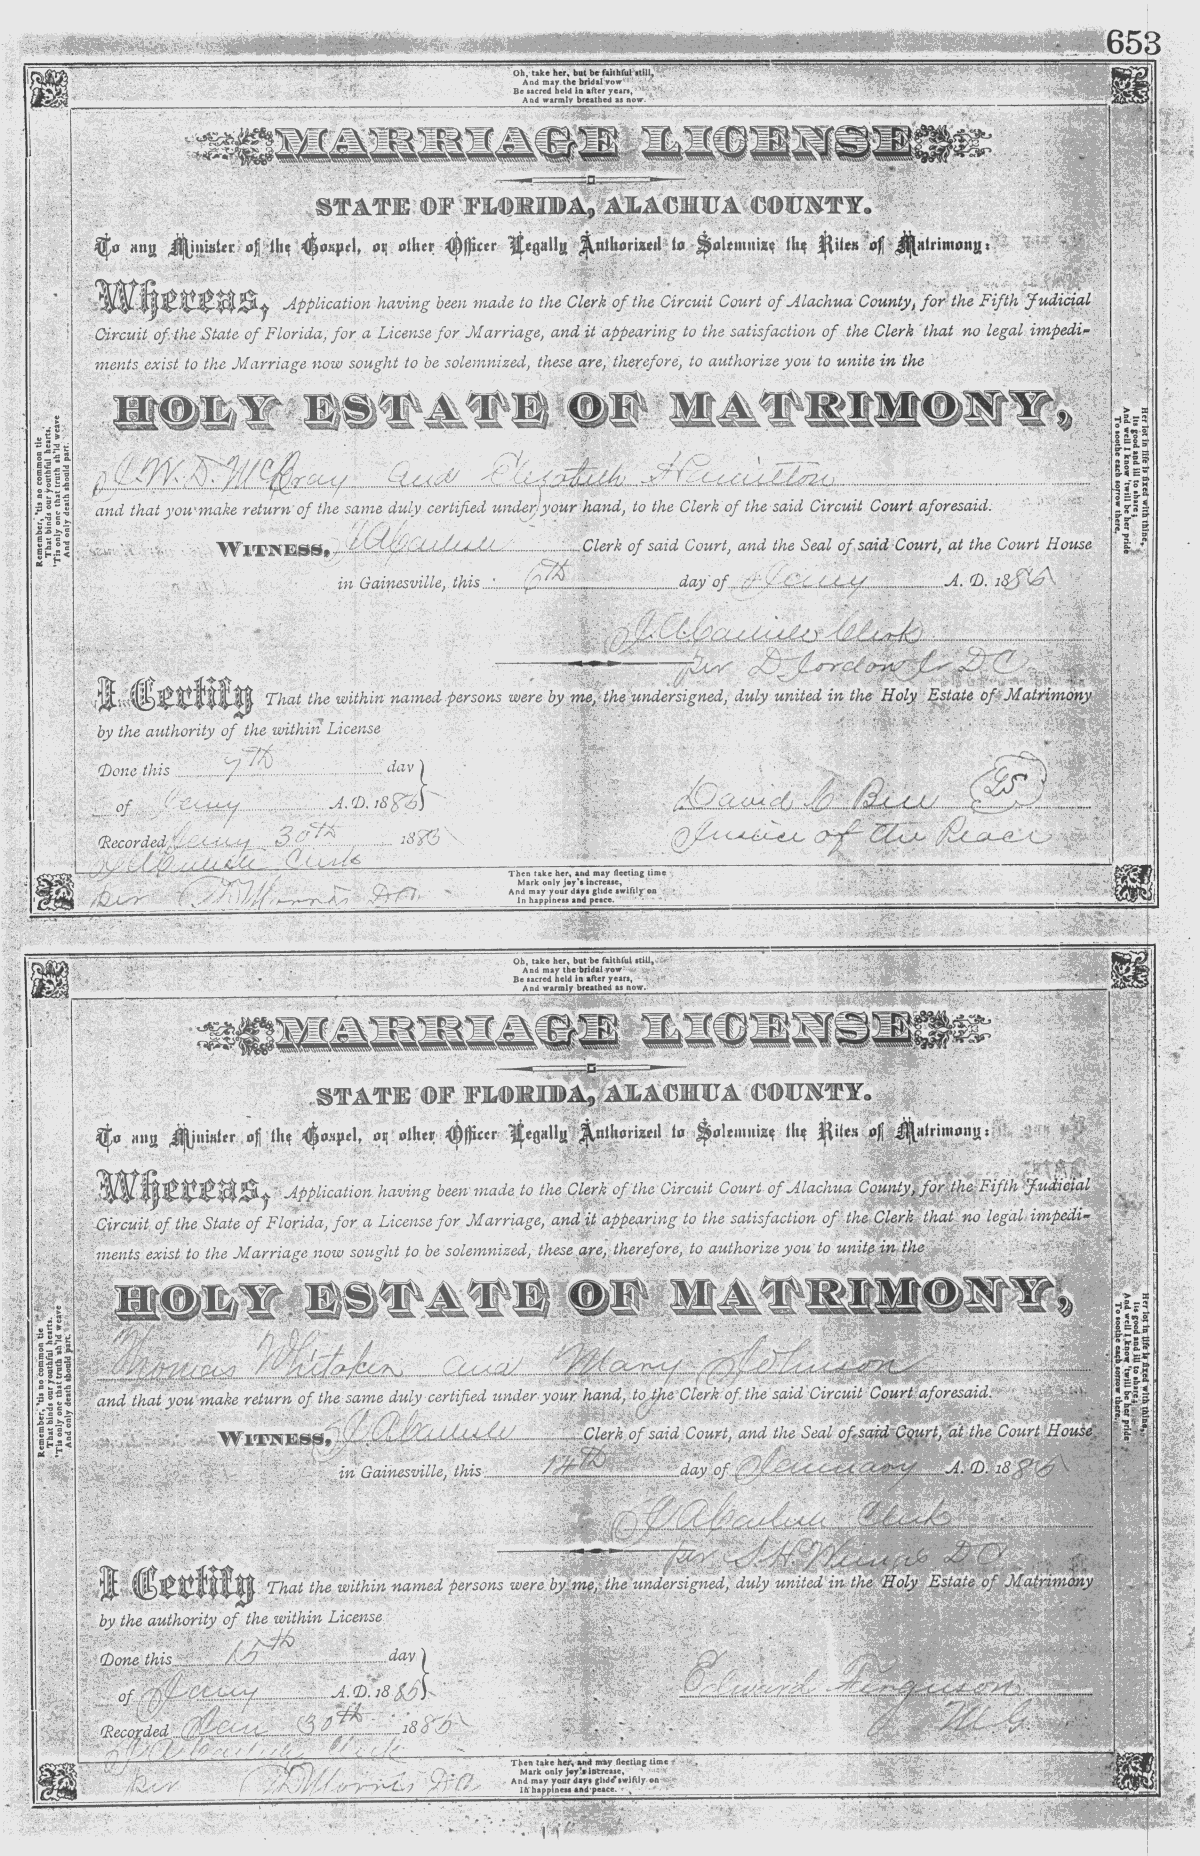 653
Oh, take her, but be faithful still,
And may the bridal vow
Be sacred held in after years,
And warmly breathed as now.
MARRIAGE LICENSE
STATE OF FLORIDA, ALACHUA COUNTY.
To any Minister of the Gospel, or other Officer Legally Authorized to Solemnize the Rites of Matrimony:
Whereas, Application having been made to the Clerk of the Circuit Court of Alachua County, for the Fifth Judicial
Circuit of the State of Florida, for a License for Marriage, and it appearing to the satisfaction of the Clerk that no legal impedi-
ments exist to the Marriage now sought to be solemnized, these are, therefore, to authorize you to unite in the
HOLY ESTATE OF MATRIMONY,
W. D. McCray and Elizabeth Hamilton
and that you make return of the same duly certified under your hand, to the Clerk of the said Circuit Court aforesaid.
WITNESS, J A Carlisle Clerk of said Court, and the Seal of said Court, at the Court House
in Gainesville, this 6th day of Jany A. D. 1885
J. A. Carlisle Clerk
per D C
I Certify That the within named persons were by me, the undersigned, duly united in the Holy Estate of Matrimony
by the authority of the within License
Done this 7th day
of Jany A. D. 1885
David Justice of the Peace
Recorded Jany 30th 1885
J A Carlisle Clerk
per Morris D C
Remember, 'tis no common tie
That binds our youthful hearts,
'Tis only one that truth sh'ld weave
And only death should part.
Her lot in life is fixed with thine,
Its good and ill to share;
And well I know 'twill be her pride
To soothe each sorrow there.
Then take her, and may fleeting time
Mark only joy's increase,
And may your days glide swiftly on
In happiness and peace.
Oh, take her, but be faithful still,
And may the bridal vow
Be sacred held in after years,
And warmly breathed as now.
MARRIAGE LICENSE
STATE OF FLORIDA, ALACHUA COUNTY.
To any Minister of the Gospel, or other Officer Legally Authorized to Solemnize the Rites of Matrimony:
Whereas, Application having been made to the Clerk of the Circuit Court of Alachua County, for the Fifth Judicial
Circuit of the State of Florida, for a License for Marriage, and it appearing to the satisfaction of the Clerk that no legal impedi-
ments exist to the Marriage now sought to be solemnized, these are, therefore, to authorize you to unite in the
HOLY ESTATE OF MATRIMONY,
Thomas Whitaker and Mary Johnson
and that you make return of the same duly certified under your hand, to the Clerk of the said Circuit Court aforesaid.
WITNESS, J A Carlisle Clerk of said Court, and the Seal of said Court, at the Court House
in Gainesville, this 14th day of January A. D. 1885
J A Carlisle Clerk
per S. H. D C
I Certify That the within named persons were by me, the undersigned, duly united in the Holy Estate of Matrimony
by the authority of the within License
Done this 15th day
of Jany A. D. 1885
Edward Ferguson
M G
Recorded Jan 30th 1885
J A Carlisle Clerk
per Morris D C
Remember, 'tis no common tie
That binds our youthful hearts,
'Tis only one that truth sh'ld weave
And only death should part.
Her lot in life is fixed with thine,
Its good and ill to share;
And well I know 'twill be her pride
To soothe each sorrow there.
Then take her, and may fleeting time
Mark only joy's increase,
And may your days glide swiftly on
In happiness and peace.